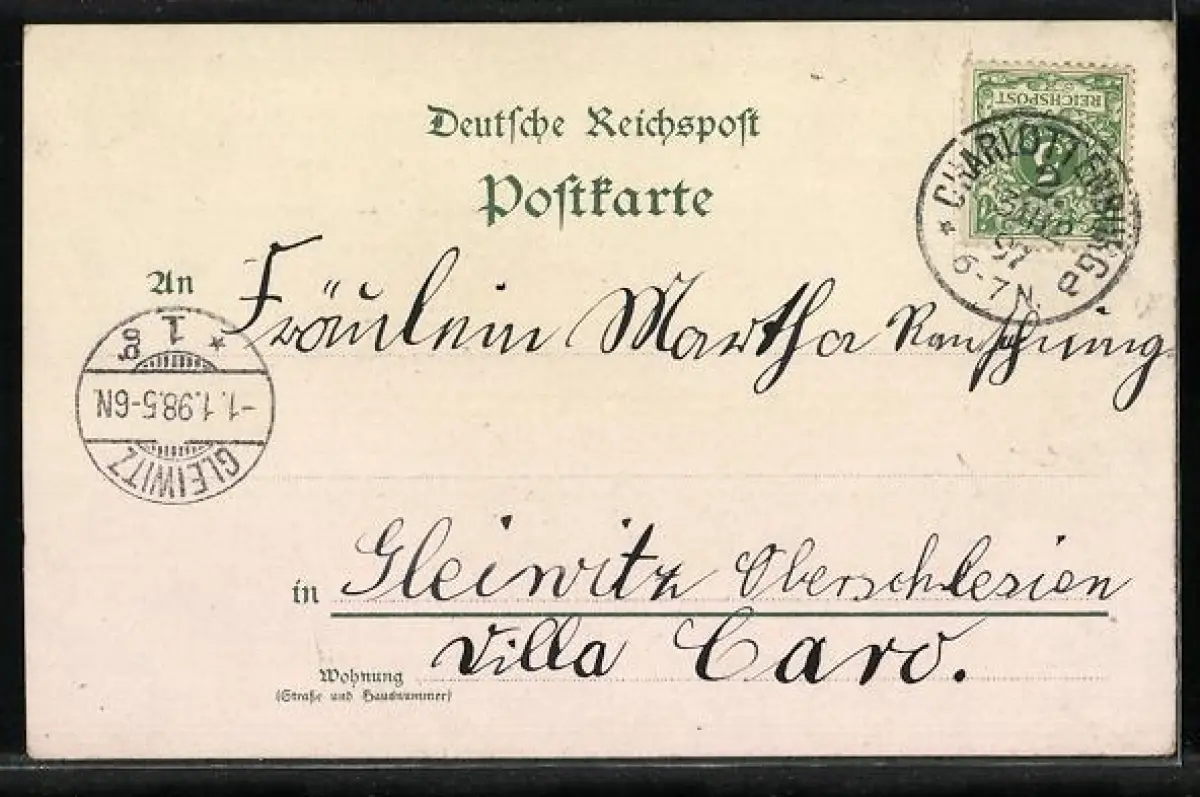 Deutsche Reichspost
Postkarte
REICHSPOST
CHARLOTTENBURG
2
97
6-7N.
An Fräulein Martha
1
-1.1.98.5-6N.
GLEIWITZ
in Gleiwitz Oberschlesien
Villa Caro.
Wohnung
(Straße und Hausnummer)